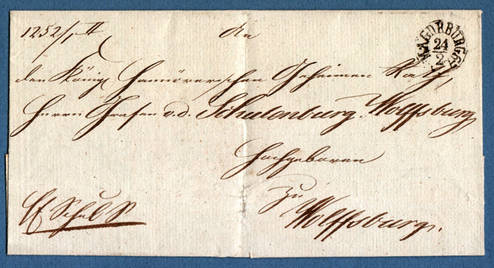 An
den König Hannöverschen Geheimen Rath
Herrn Grafen v. d. Schulenburg-Wolffsburg
Hochgeboren
zu
Wolffsburg.
24
2